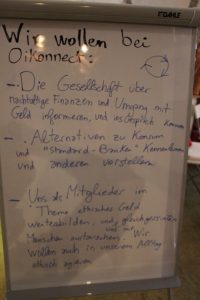 Wir wollen bei
Oikonnect:
- Die Gesellschaft über
nachhaltige Finanzen und Umgang mit
Geld informieren, und ins Gespräch kommen
- Alternativen zu Konsum
und "Standard-Banken" kennenlernen
und anderen vorstellen
- Uns als Mitglieder im
Thema ethisches Geld
weiterbilden, und gleichgesinnten
Menschen austauschen. Wir
wollen auch in unserem Alltag
ethisch agieren